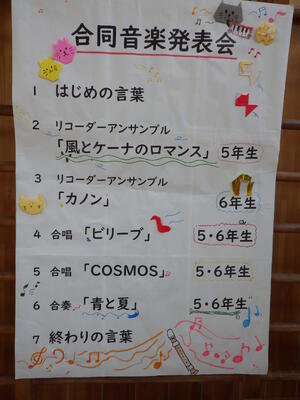 合同音楽発表会
1 はじめの言葉
2 リコーダーアンサンブル
「風とケーナのロマンス」 5年生
3 リコーダーアンサンブル
「カノン」 6年生
4 合唱 「ビリーブ」 5・6年生
5 合唱 「COSMOS」 5・6年生
6 合奏 「青と夏」 5・6年生
7 終わりの言葉